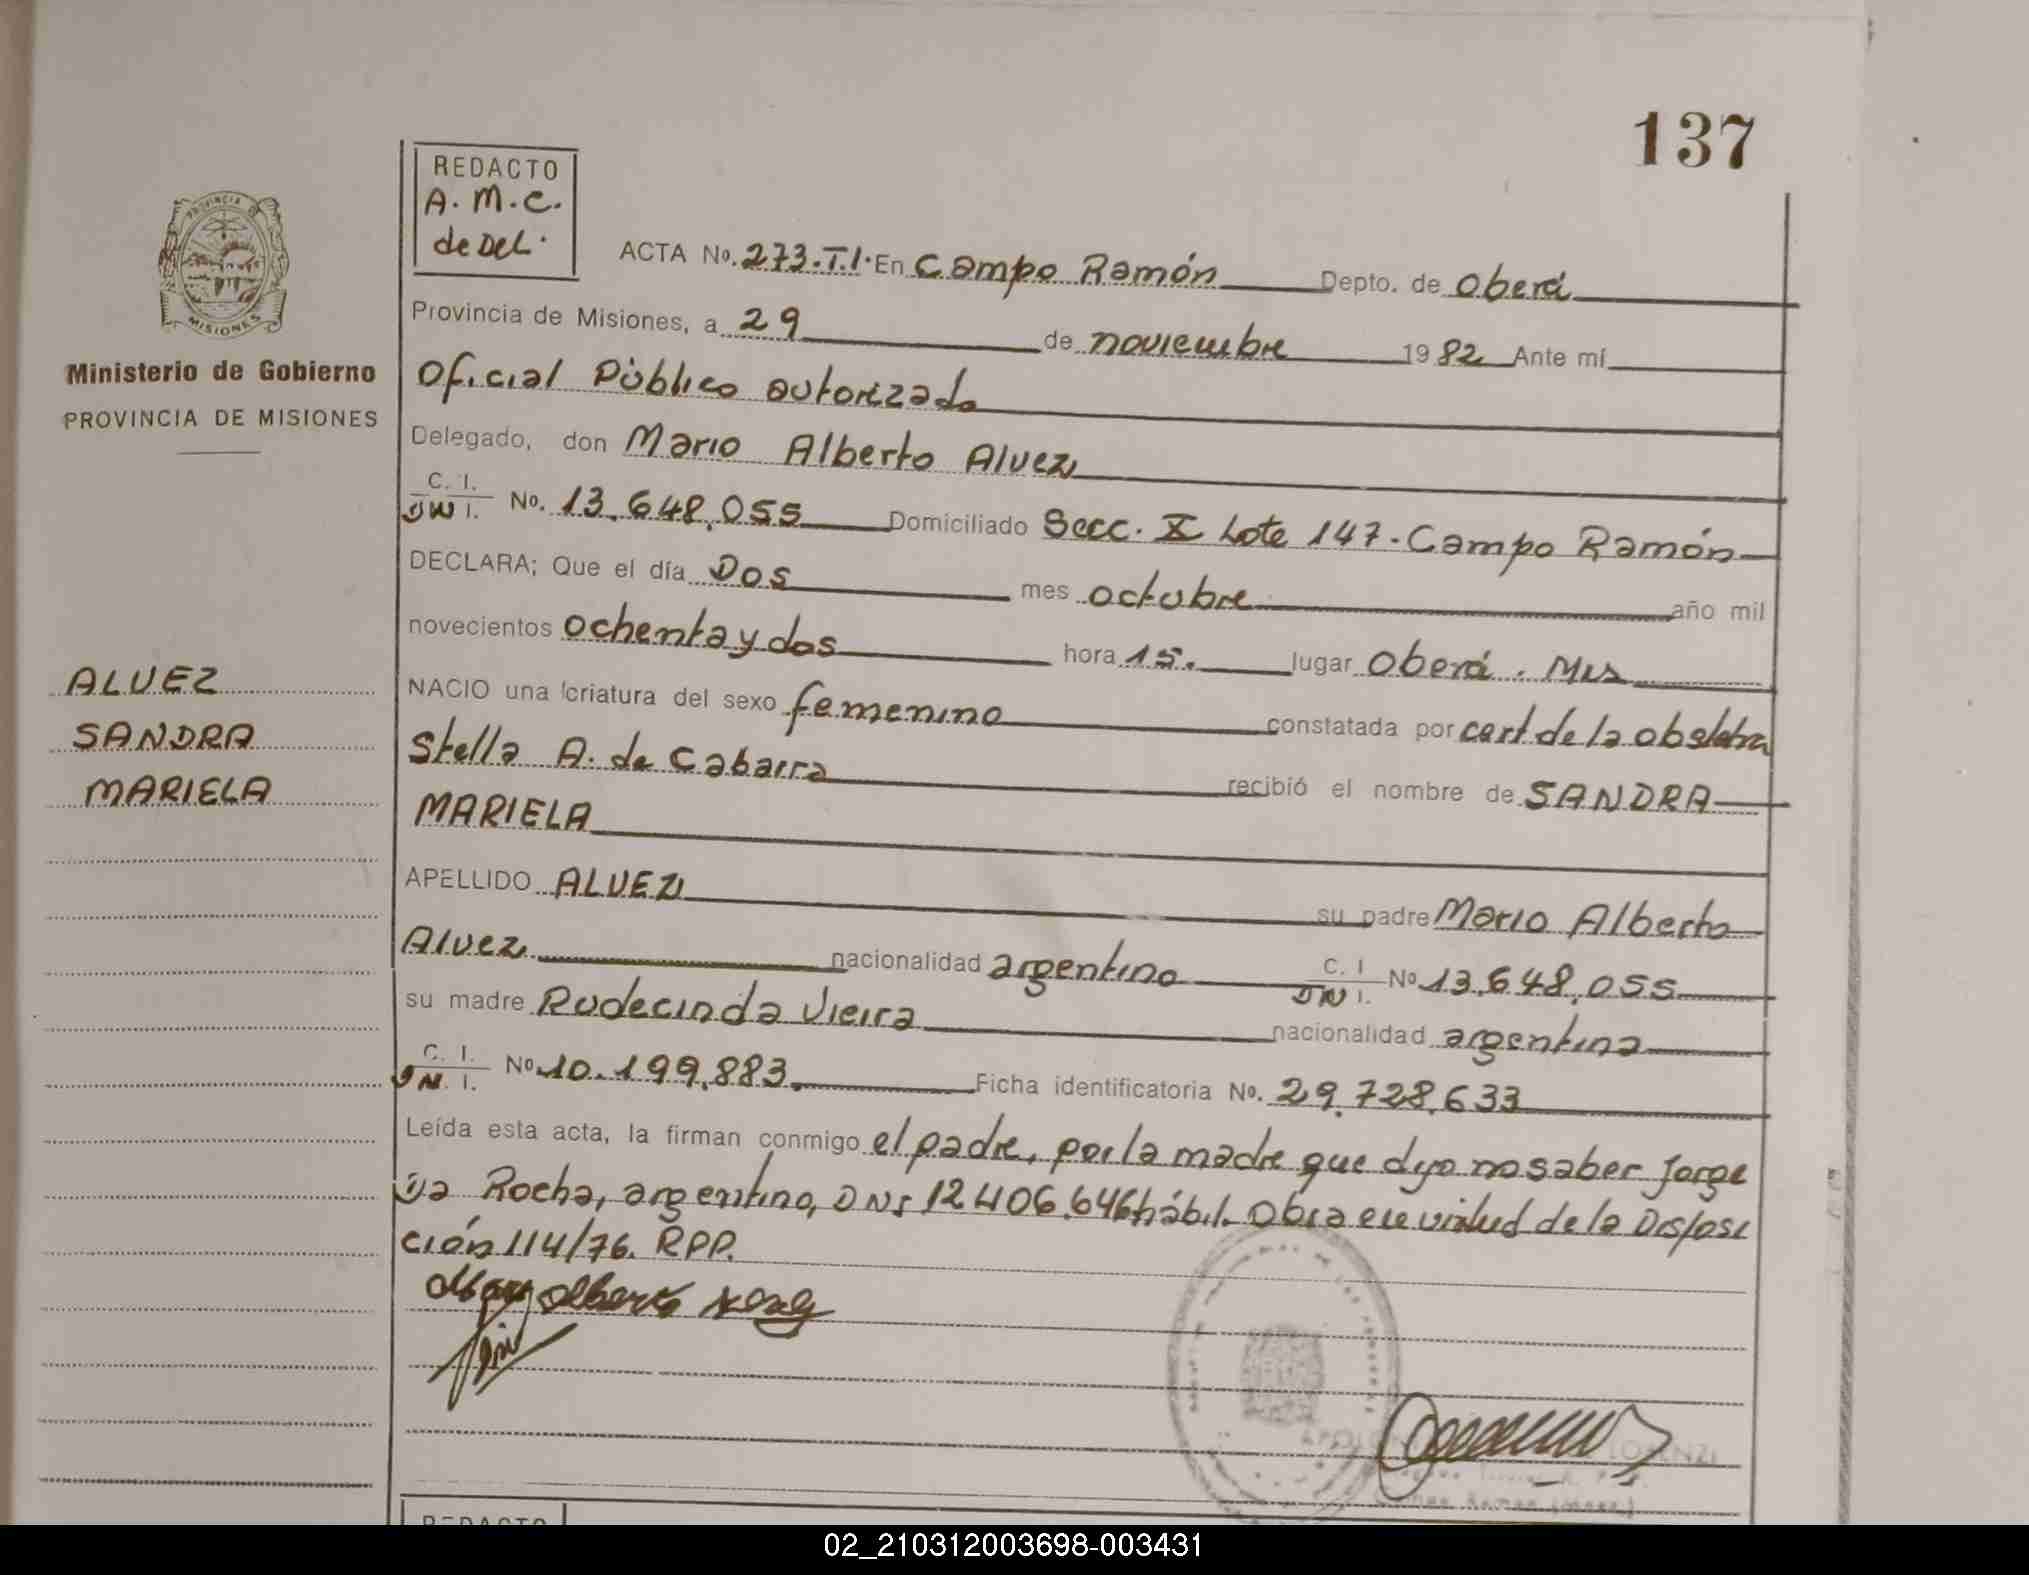 137
REDACTO
A. M. C.
de DEL.
ACTA No. 273. T.I. En Campo Ramón Depto. de Oberá
Provincia de Misiones, a 29 de noviembre 1982 Ante mí
Oficial Público autorizado
Delegado, don Mario Alberto Alvez
C. I.
DNI. No. 13.648.055 Domiciliado Secc. X Lote 147. Campo Ramón
DECLARA; Que el día Dos mes octubre año mil
novecientos ochenta y dos hora 15. lugar Oberá. Mns
NACIO una criatura del sexo femenino constatada por cert. de la obstetra
Stella A. de Cabarra recibió el nombre de SANDRA
MARIELA
APELLIDO ALVEZ su padre Mario Alberto
Alvez nacionalidad argentino C. I.
DNI. No. 13.648.055
su madre Rudecinda Vieira nacionalidad argentina
C. I.
DNI. No. 10.199.883. Ficha identificatoria No. 29.728.633
Leída esta acta, la firman conmigo el padre, por la madre que dijo no saber Jorge
Da Rocha, argentino, DNI 12.406.646 hábil. Obra en virtud de la Disposi
ción 114/76. RPP.
PROVINCIA DE
MISIONES
Ministerio de Gobierno
PROVINCIA DE MISIONES
ALVEZ
SANDRA
MARIELA
REDACTO
02_210312003698-003431